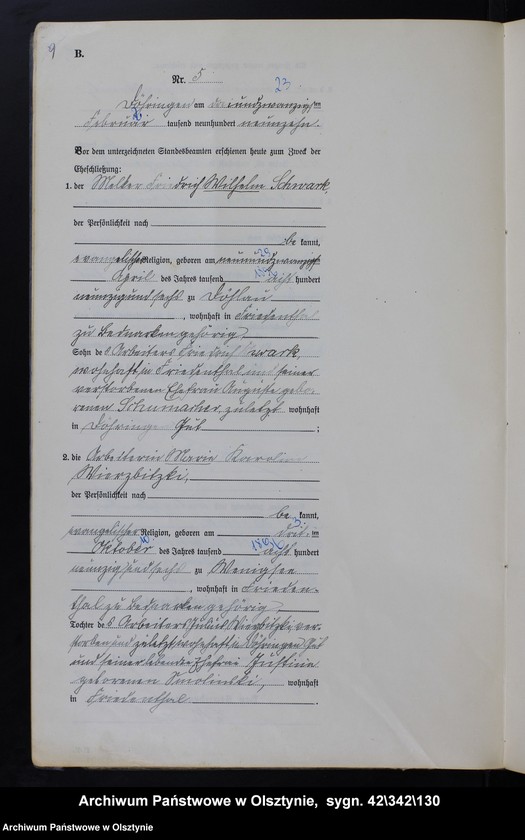 9
B.
Nr. 5
23
Döhringen am dreiundzwanzigsten
Februar tausend neunhundert neunzehn.
Vor dem unterzeichneten Standesbeamten erschienen heute zum Zweck der
Eheschließung:
1. der Melker Friedrich Wilhelm Schwark,
der Persönlichkeit nach
be kannt,
evangelischer Religion, geboren am neunundzwanzigsten
29
April des Jahres tausend acht hundert
1896
neunzig und sechs zu Döhlau
, wohnhaft in Friedenthal
zu Bednarken gehörig
Sohn des Arbeiters Friedrich Schwark,
wohnhaft in Friedenthal und seiner
verstorbenen Ehefrau Auguste gebo-
renen Schumacher, zuletzt wohnhaft
in Döhringen Gut ;
2. die Arbeiterin Marie Karoline
Wierzbitzki,
der Persönlichkeit nach
be kannt,
evangelischer Religion, geboren am dritten
3
Oktober des Jahres tausend acht hundert
10 1896
neunzig und sechs zu Wenigsee
, wohnhaft in Frieden-
thal zu Bednarken gehörig
Tochter des Arbeiters Julius Wierzbitzki, ver-
storben und zuletzt wohnhaft in Döhringen Gut
und seiner lebenden Ehefrau Justine
geborenen Smolinski, wohnhaft
in Friedenthal .
Archiwum Państwowe w Olsztynie, sygn. 42\342\130
Archiwum Państwowe w Olsztynie